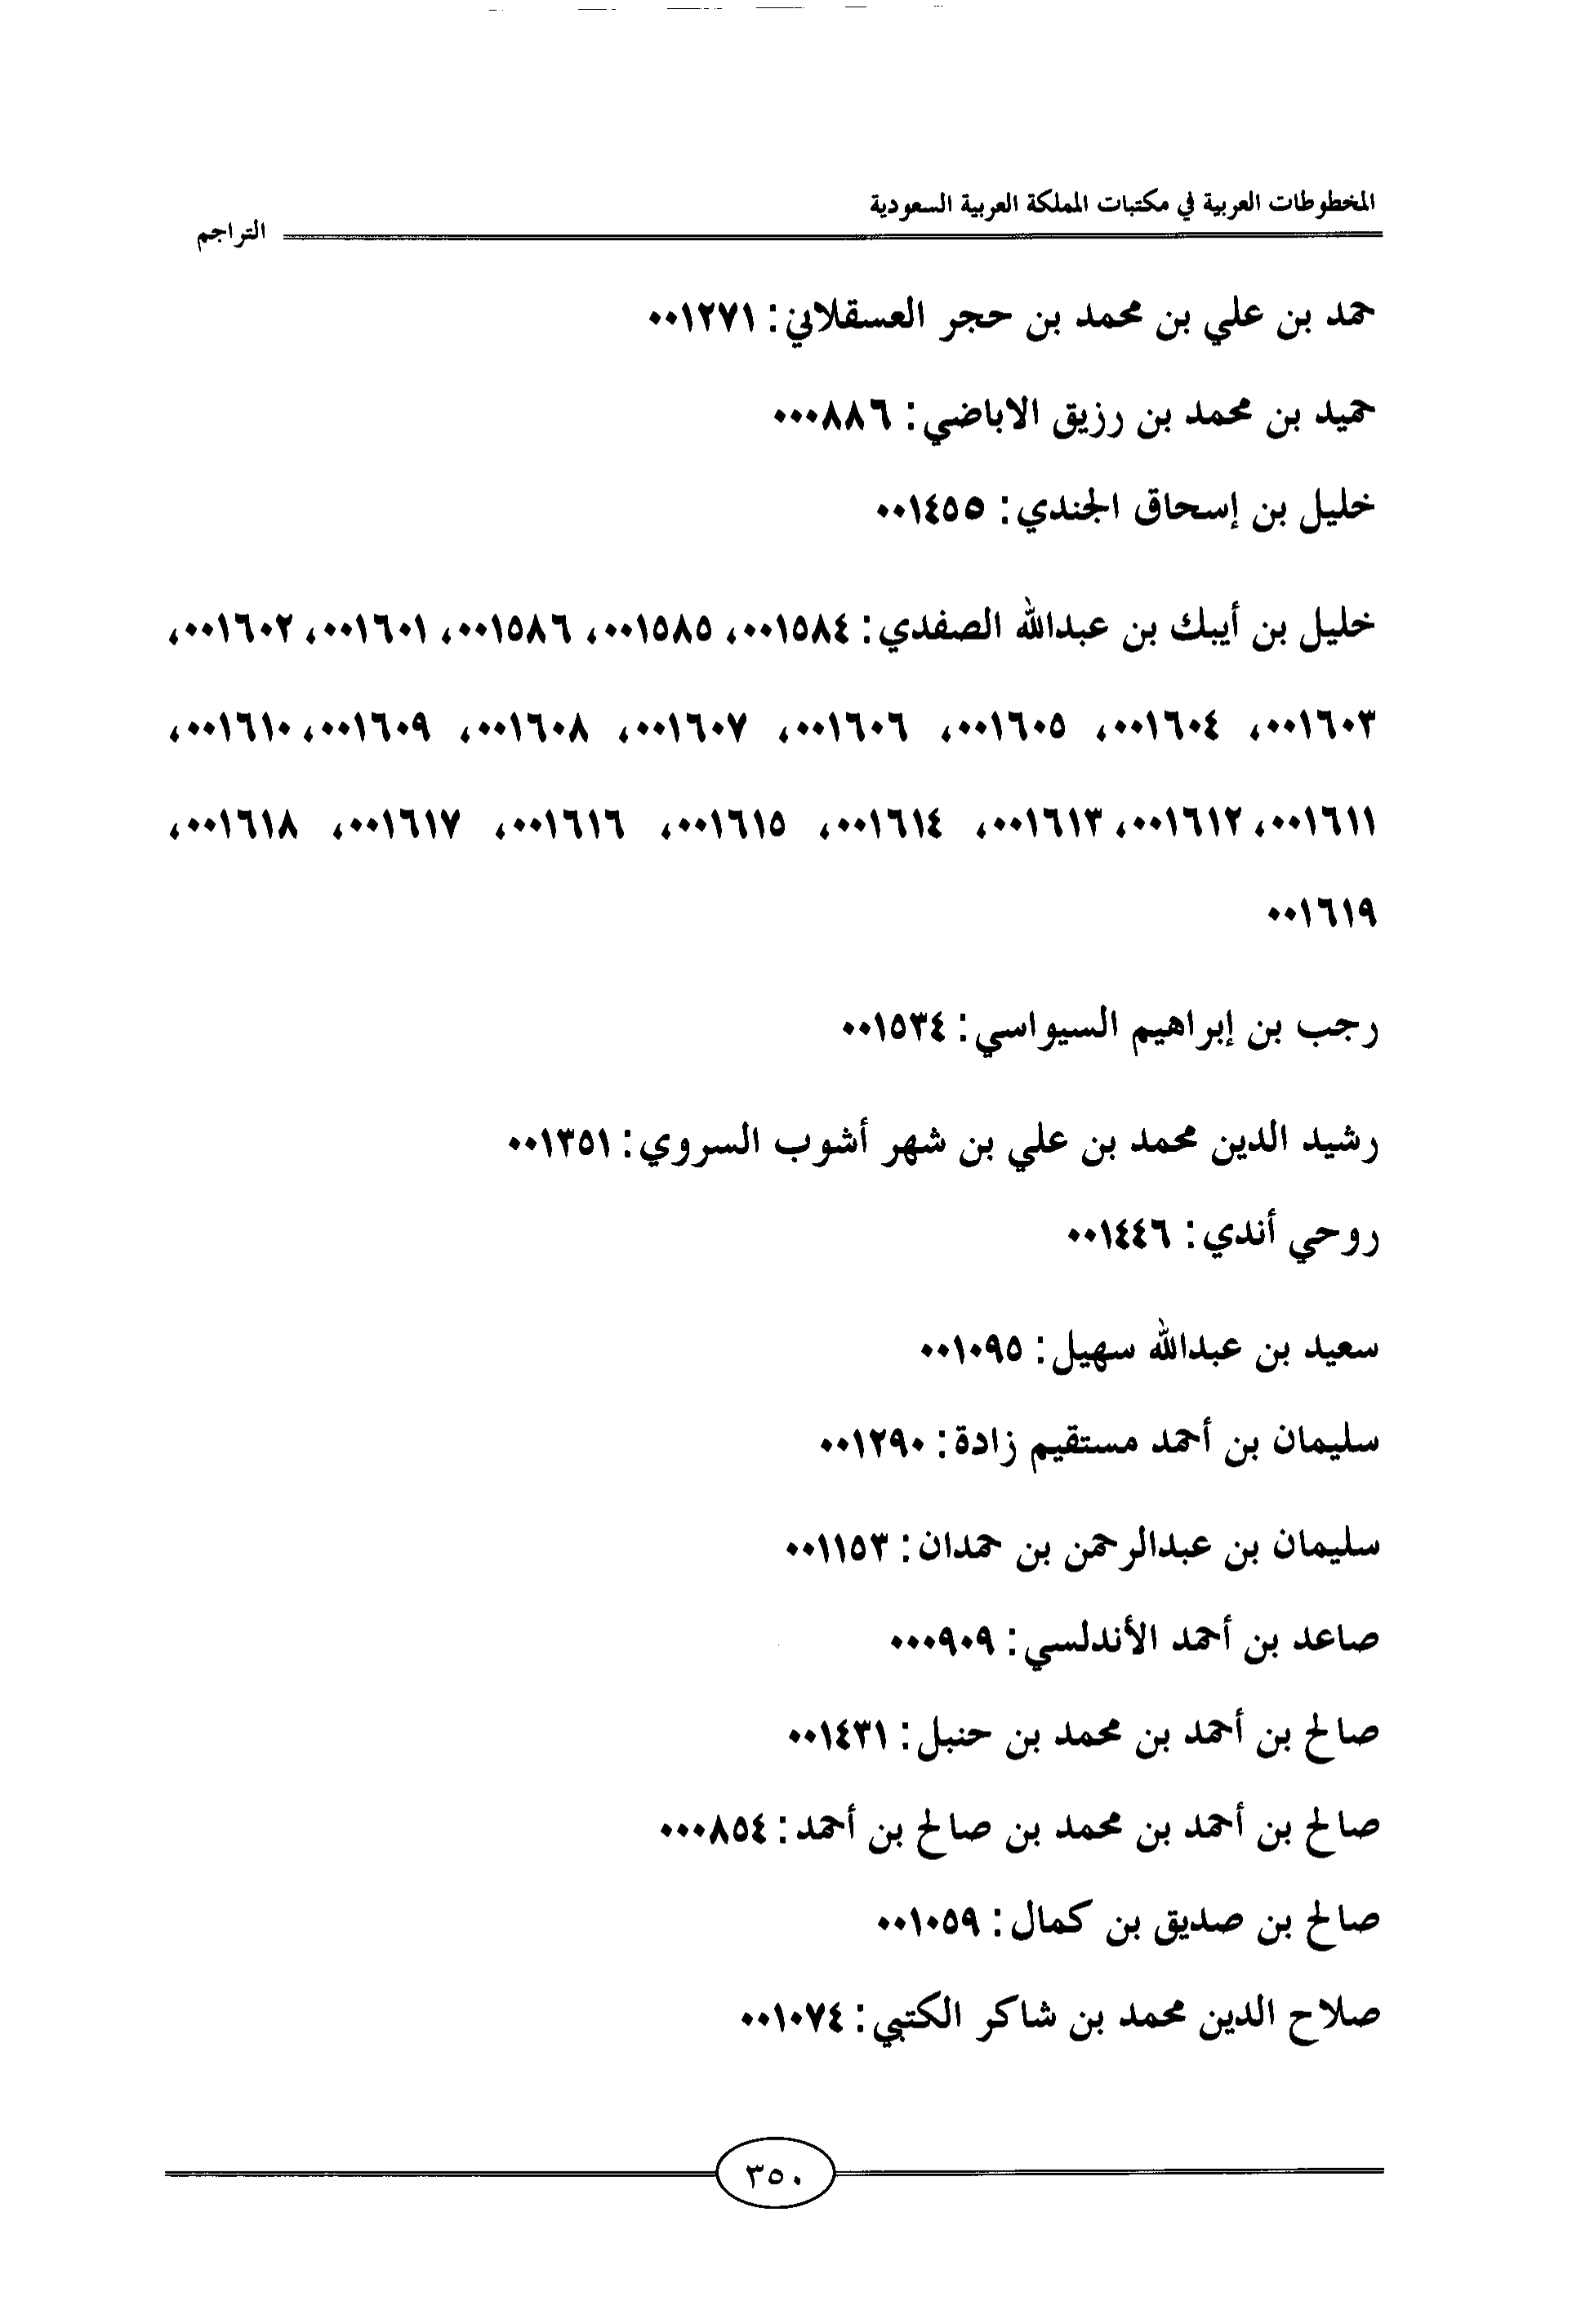 المخطوطات العربية في مكتبات المملكة العربية السعودية
التراجم
حمد بن علي بن محمد بن حجر العسقلاني: ٠٠١٢٧١
حميد بن محمد بن رزيق الاباضي: ٠٠٠٨٨٦
خليل بن إسحاق الجندي: ٠٠١٤٥٥
خليل بن أيبك بن عبدالله الصفدي: ٠٠١٥٨٤، ٠٠١٥٨٥، ٠٠١٥٨٦، ٠٠١٦٠١، ٠٠١٦٠٢،
٠٠١٦٠٣، ٠٠١٦٠٤، ٠٠١٦٠٥، ٠٠١٦٠٦، ٠٠١٦٠٧، ٠٠١٦٠٨، ٠٠١٦٠٩، ٠٠١٦١٠،
٠٠١٦١١، ٠٠١٦١٢، ٠٠١٦١٣، ٠٠١٦١٤، ٠٠١٦١٥، ٠٠١٦١٦، ٠٠١٦١٧، ٠٠١٦١٨،
٠٠١٦١٩
رجب بن إبراهيم السيواسي: ٠٠١٥٣٤
رشيد الدين محمد بن علي بن شهر أشوب السروي: ٠٠١٣٥١
روحي أندي: ٠٠١٤٤٦
سعيد بن عبدالله سهيل: ٠٠١٠٩٥
سليمان بن أحمد مستقيم زادة: ٠٠١٢٩٠
سليمان بن عبدالرحمن بن حمدان: ٠٠١١٥٣
صاعد بن أحمد الأندلسي: ٠٠٠٩٠٩
صالح بن أحمد بن محمد بن حنبل: ٠٠١٤٣١
صالح بن أحمد بن محمد بن صالح بن أحمد: ٠٠٠٨٥٤
صالح بن صديق بن كمال: ٠٠١٠٥٩
صلاح الدين محمد بن شاكر الكتبي: ٠٠١٠٧٤
٣٥٠